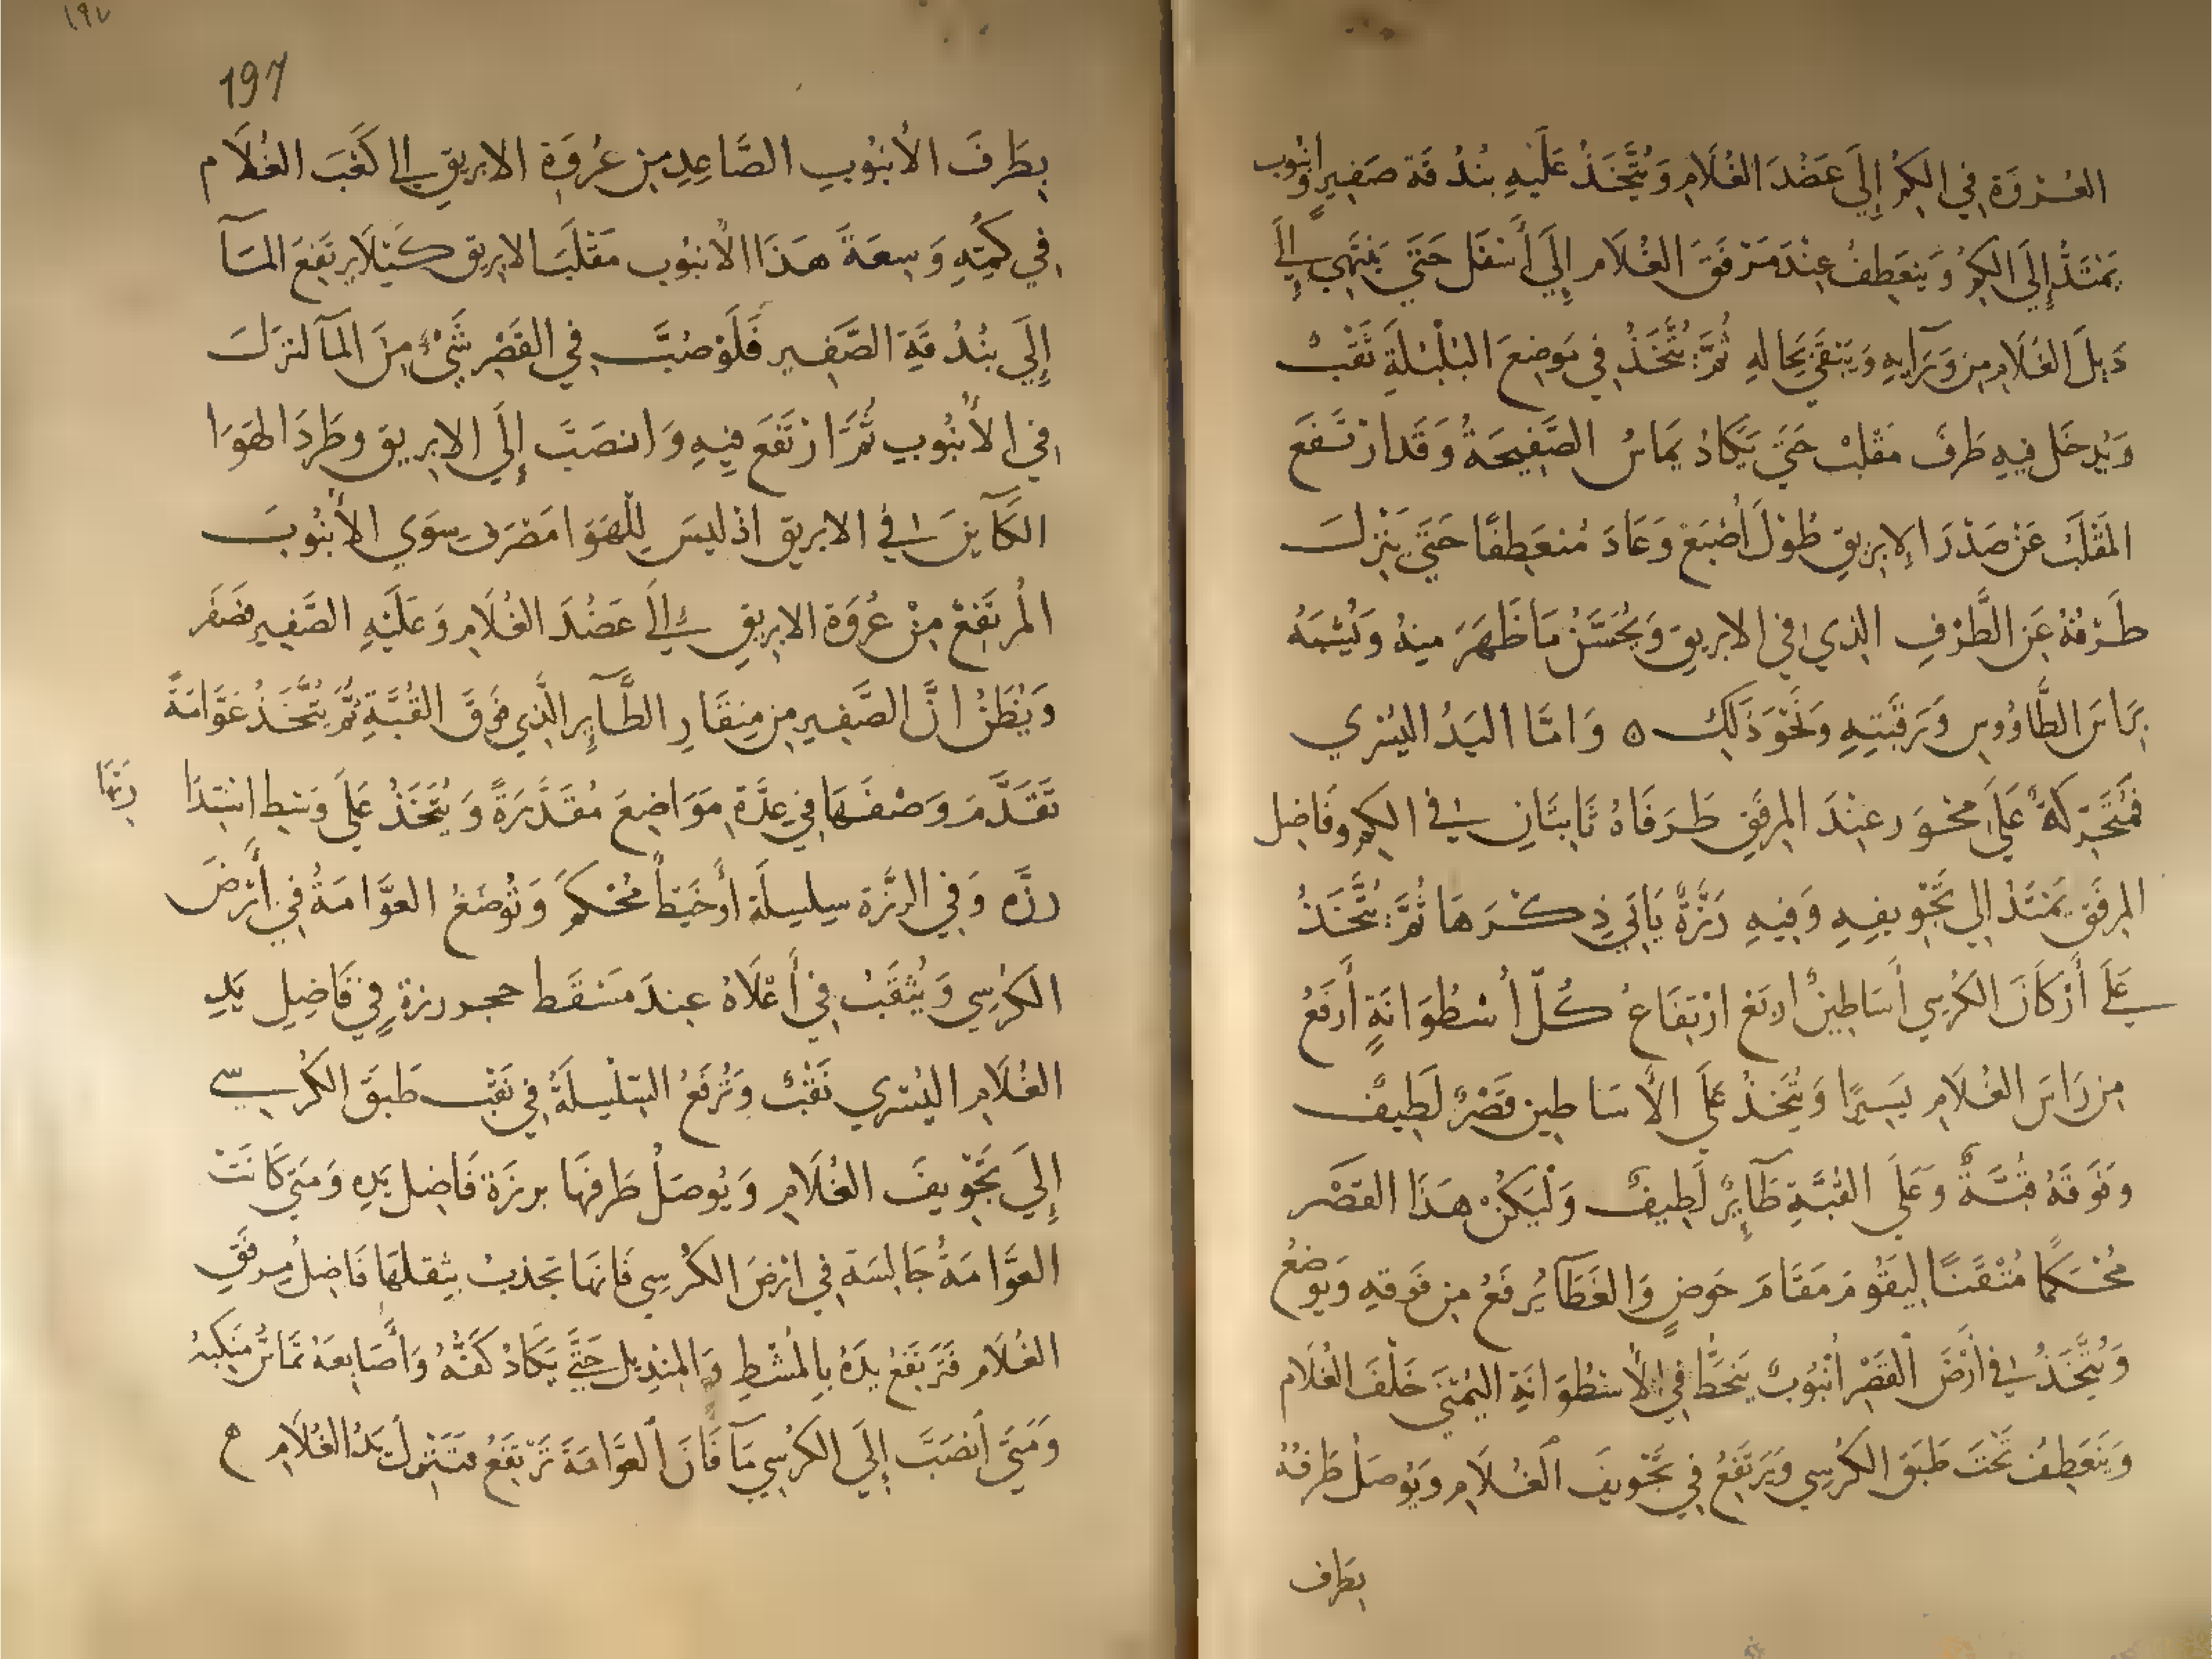 العُروَة في الكم إلَى عَضُدَ الغُلَامِ وَيُتَّخَذُ عَلَيْهِ بُندُقَة صَفِيرٍ وانبُوب
يَمْتَدُّ إِلَى الكمِ وَينعَطِفُ عِنْدَ مَرْفَقَ الغُلَام إِلَي أسْفَل حَتَّي يَنْتَهِي إِلَي
ذَيلَ الغُلَامِ مِن وَرَآيهِ وَيَبْقَي بِحَالهِ ثُمَّ يُتَّخَذُ في مَوضِعَ البُلْبُلَةِ ثَقْبٌ
وَيُدخَل فيهِ طَرَفَ مَقْلَب حَتَّي يَكَادُ يمَاسُ الصَّفِيحَةُ وَقَد ارْتَفَعَ
المَقْلَبُ عَنْ صَدْرَ الإبرِيقِ طُوْلَ أُصْبُعَ وَعَادَ مُنعَطِفًا حَتَّي يَنْزلَ
طَرْفُهُ عَن الطَّرْفِ الذِي في الابريقَ وَيُحَسَّنُ مَا ظَهَرَ مِنهُ وَيُشبَهُ
بِرَاسَ الطَّاوُوسِ وَرَقَبَتِهِ وَنَحْوَ ذَلِكَ ه وَامَّا اليَدُ اليُسْرَي
فَمُتَحَرِّكَةٌ عَلَي مِحْوَر عِنْدَ المرفَقِ طَرَفَاهُ ثَابِتَانِ في الكم وفَاضِل
المِرفَقِ يَمْتَدُّ إلي تَجْوِيفِهِ وَفِيهِ رَزَّةٌ يَاتي ذِكْرهَا ثُمَّ يُتَّخَذُ
عَلَي أَرْكَانَ الكُرسِي أَسَاطِينٌ اربَع ارْتِفَاعُ كُلّ أُسْطُوَانَةٍ أَرفَعُ
مِن رَاسَ الغُلَامِ يَسِيرًا وَيُتَّخَذُ عَلَي الأَسَاطِين قَصْرٌ لَطِيفٌ
وَفَوقَهُ قُبَّةٌ وَعَلَي القُبَّةِ طَآيِرٌ لَطِيفٌ وَلْيَكُنْ هَذَا القَصْر
مُحْكمًا مُتْقَنًا لِيَقُومَ مَقَامَ حَوضٍ وَالغَطَآ يُرفَعُ مِن فَوقِهِ وَيوضَعُ
وَيُتَّخَذُ في أَرْضَ القَصْرِ أُنبُوبٌ يَنحَطُّ في الأسْطُوَانَةِ اليُمْنَي خَلْفَ الغُلَام
وَيَنعَطِفُ تَحْتَ طَبَقَ الكُرْسِي وَيَرتَفِعُ فِي تَجْوِيفَ الغُلَامِ وَيُوصَلُ طَرفُهُ
بطَرف
١٩٧
197
بِطَرفَ الأنبُوبِ الصَّاعِدِ مِن عُروَة الابريقِ إلي كَعْبَ الغُلَام
في كمِّهِ وَسِعَةَ هَذَا الأنبُوب مَقْلَبَ الابريق كَيْلَا يرتَفِعَ المَآ
إِلَي بُنْدُقَةِ الصَّفِير فَلَوْ صُبَّ في القَصْرِ شَيْءٌ مِنَ المآ لنزلَ
في الأنبُوب ثُمَّ ارْتَفَعَ فِيهِ وَانصَبَّ إلَي الابريق وطَرَدَ الهوَا
الكَآينَ في الابريق اذ ليسَ لِلْهَوَا مَصْرَف سِوَي الأنبُوبَ
المُرتَفِعْ مِنْ عُروَة الابريق إلَي عَضُدَ الغُلَامِ وَعَلَيْهِ الصَّفِير فصَفَر
وَيُظَنُ انَّ الصَّفِير مِن مِنقَارِ الطَّآيِر الَّذِي فَوقَ القُبَّةِ ثُمَّ يُتَّخَذُ عَوَّامَةً
تَقَدَّمَ وَصْفَهَا في عِدَّة مَوَاضِعَ مُقَدَّرَةً وَيُتَّخَذُ عَلَي وَسَط
رزَّه وَفِي الرزَّة سِلسِلَة أوخَيطاً مُحْكَم وَتُوضَعُ العَوَّامَةُ في أَرضَ
الكُرسِي وَيُثقَبُ في أَعْلَاهُ عِندَ مَسْقَط حجر رزة في فَاضِلِ يَدِ
الغُلَامِ اليُسْرَي ثَقْبٌ وَتُرْفَعُ السِّلْسِلَةُ في ثَقْب طَبَقَ الكُرسِي
إلَي تَجْوِيفَ الغُلَامِ وَيُوصَلُ طَرفهَا برزَة فَاضِل يَدِه وَمَتَي كَانَتْ
العَوَّامَةُ جَالِسَة في ارْضَ الكُرسِي فَانهَا تجذبُ بِثِقلهَا فَاضِلُ مِرفَقَ
الغُلَام فَتَرتَفِعُ يَدَهُ بِالمُشْطِ وَالمِنديل حَتَّي يَكَادُ كَفَّهُ وَأَصَابِعَهُ تَمَاسُّ مَنكبهُ
وَمَتَي أنصَبَّ إلَي الكُرسِي مَآ فَانَ العَوَّامَةَ تَرْتَفِعُ فَتَنْزلُ يَدُ الغُلَامِ ه